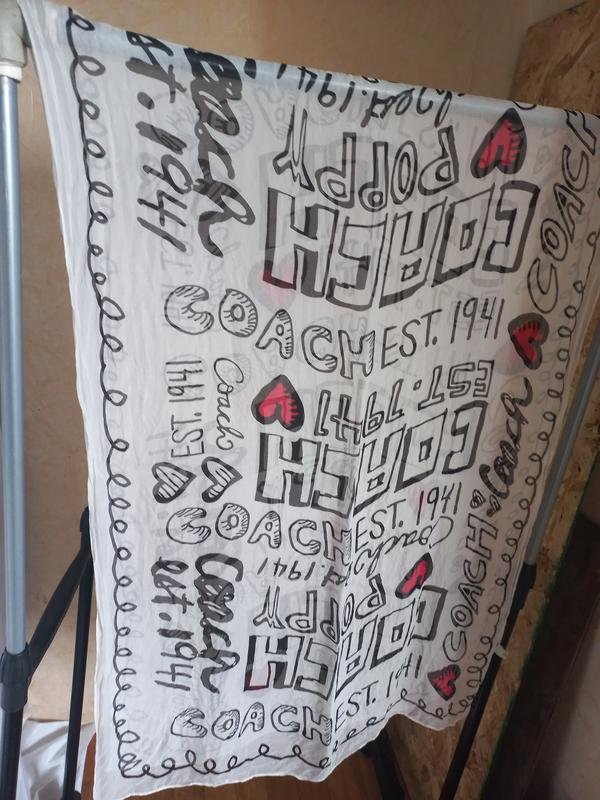 est. 1941
Coach
est. 1941
POPPY
COACH
COACH
COACH EST. 1941
EST. 1941
Coach
EST. 1941
COACH
COACH EST. 1941
Coach
est. 1941
Coach
est. 1941
POPPY
COACH
COACH
Coach
COACH EST. 1941